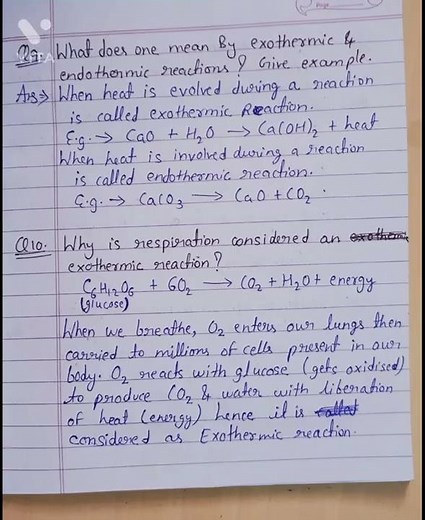 Q9. What does one mean By exothermic &
endothermic reactions? Give example.
Ans→ When heat is evolved during a reaction
is called exothermic Reaction.
E.g. → CaO + H₂O → Ca(OH)₂ + heat
When heat is involved during a reaction
is called endothermic reaction.
E.g. → CaCO₃ → CaO + CO₂.
Q10. Why is respiration considered an
exothermic reaction?
C₆H₁₂O₆ + 6O₂ → CO₂ + H₂O + energy
(glucose)
When we breathe, O₂ enters our lungs then
carried to millions of cells present in our
body. O₂ reacts with glucose (gets oxidised)
to produce CO₂ & water with liberation
of heat (energy) hence it is
considered as Exothermic reaction.